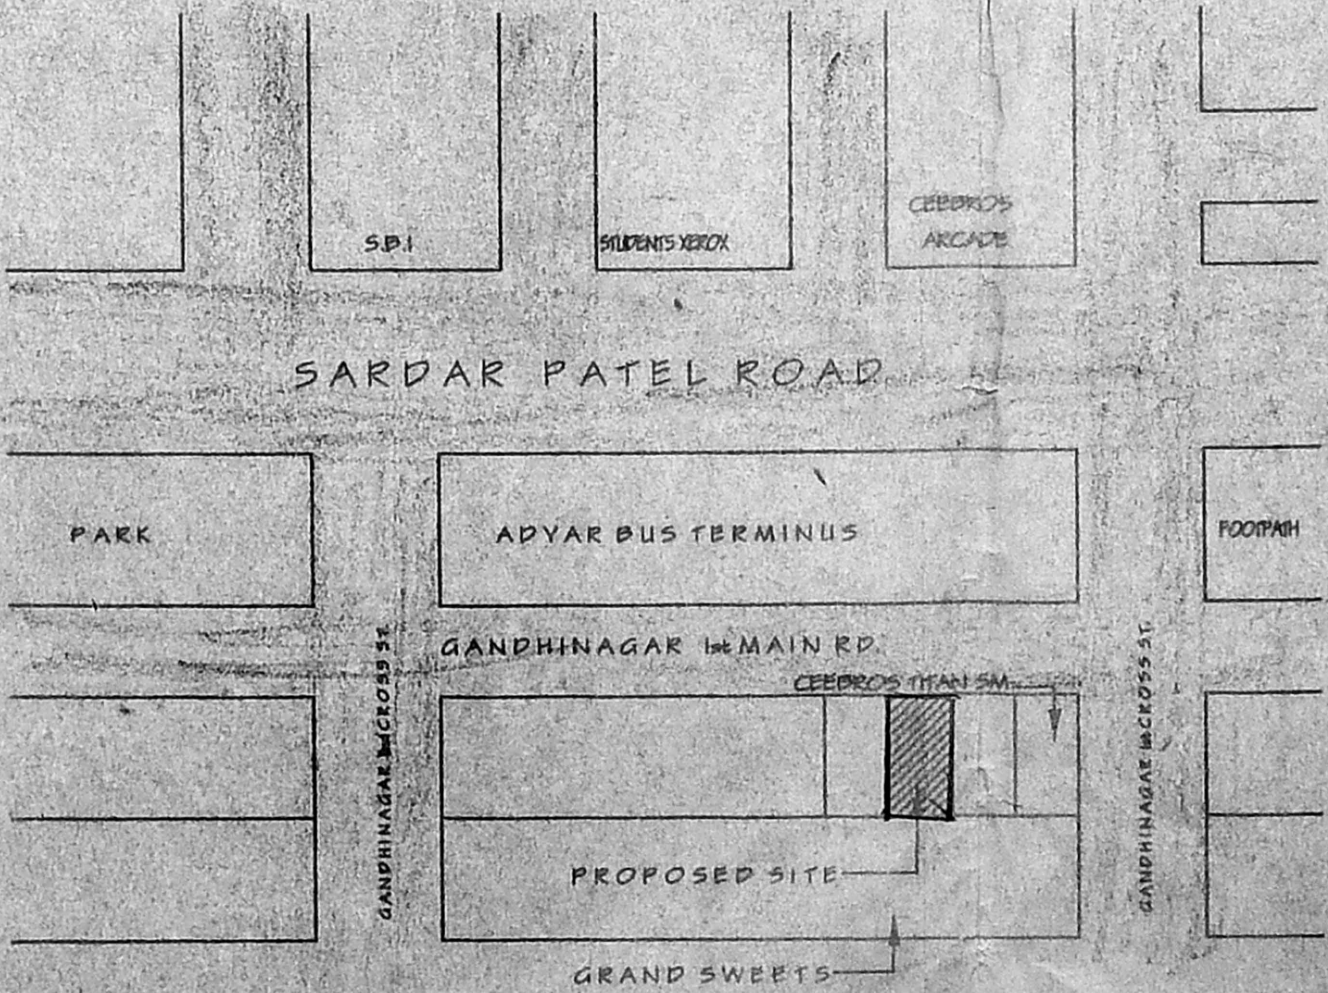 S.B.I
STUDENTS XEROX
CEEBROS
ARCADE
SARDAR PATEL ROAD
PARK
ADYAR BUS TERMINUS
FOOTPATH
GANDHINAGAR 1st MAIN RD.
CEEBROS THAN SM
GANDHINAGAR CROSS ST.
GANDHINAGAR 1st CROSS ST.
PROPOSED SITE
GRAND SWEETS